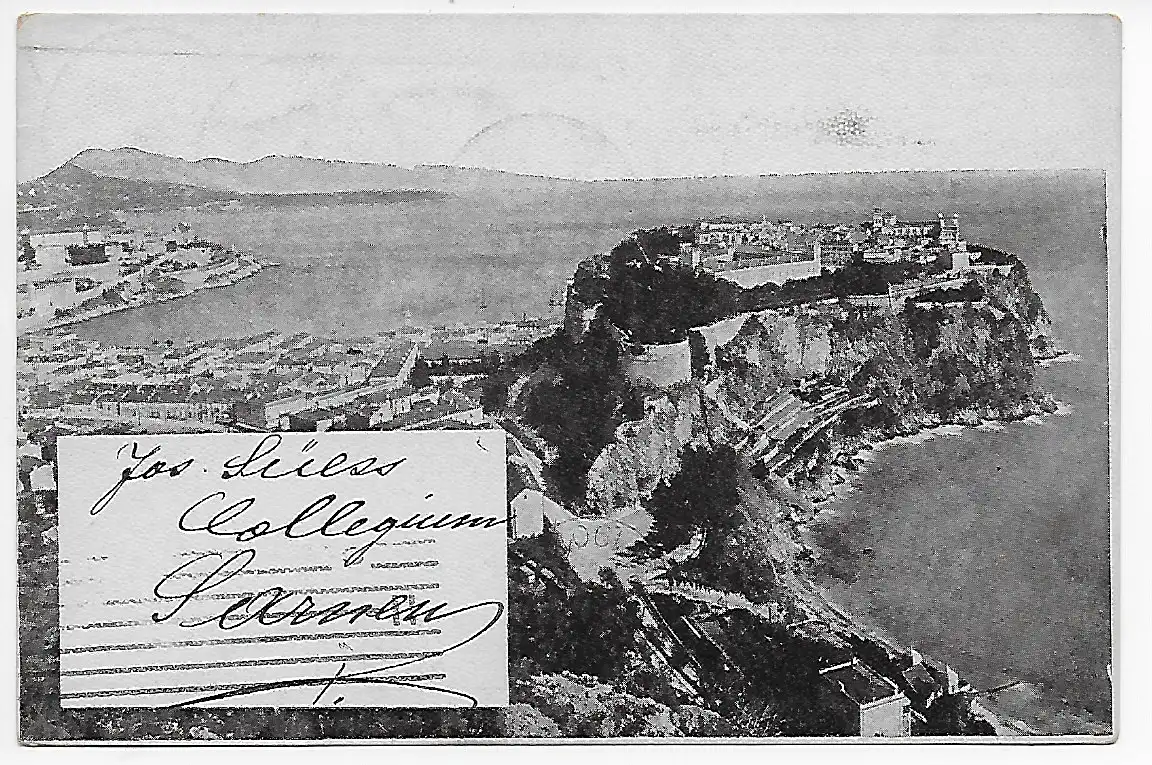 Jos. Süess
Collegium
Sarnen